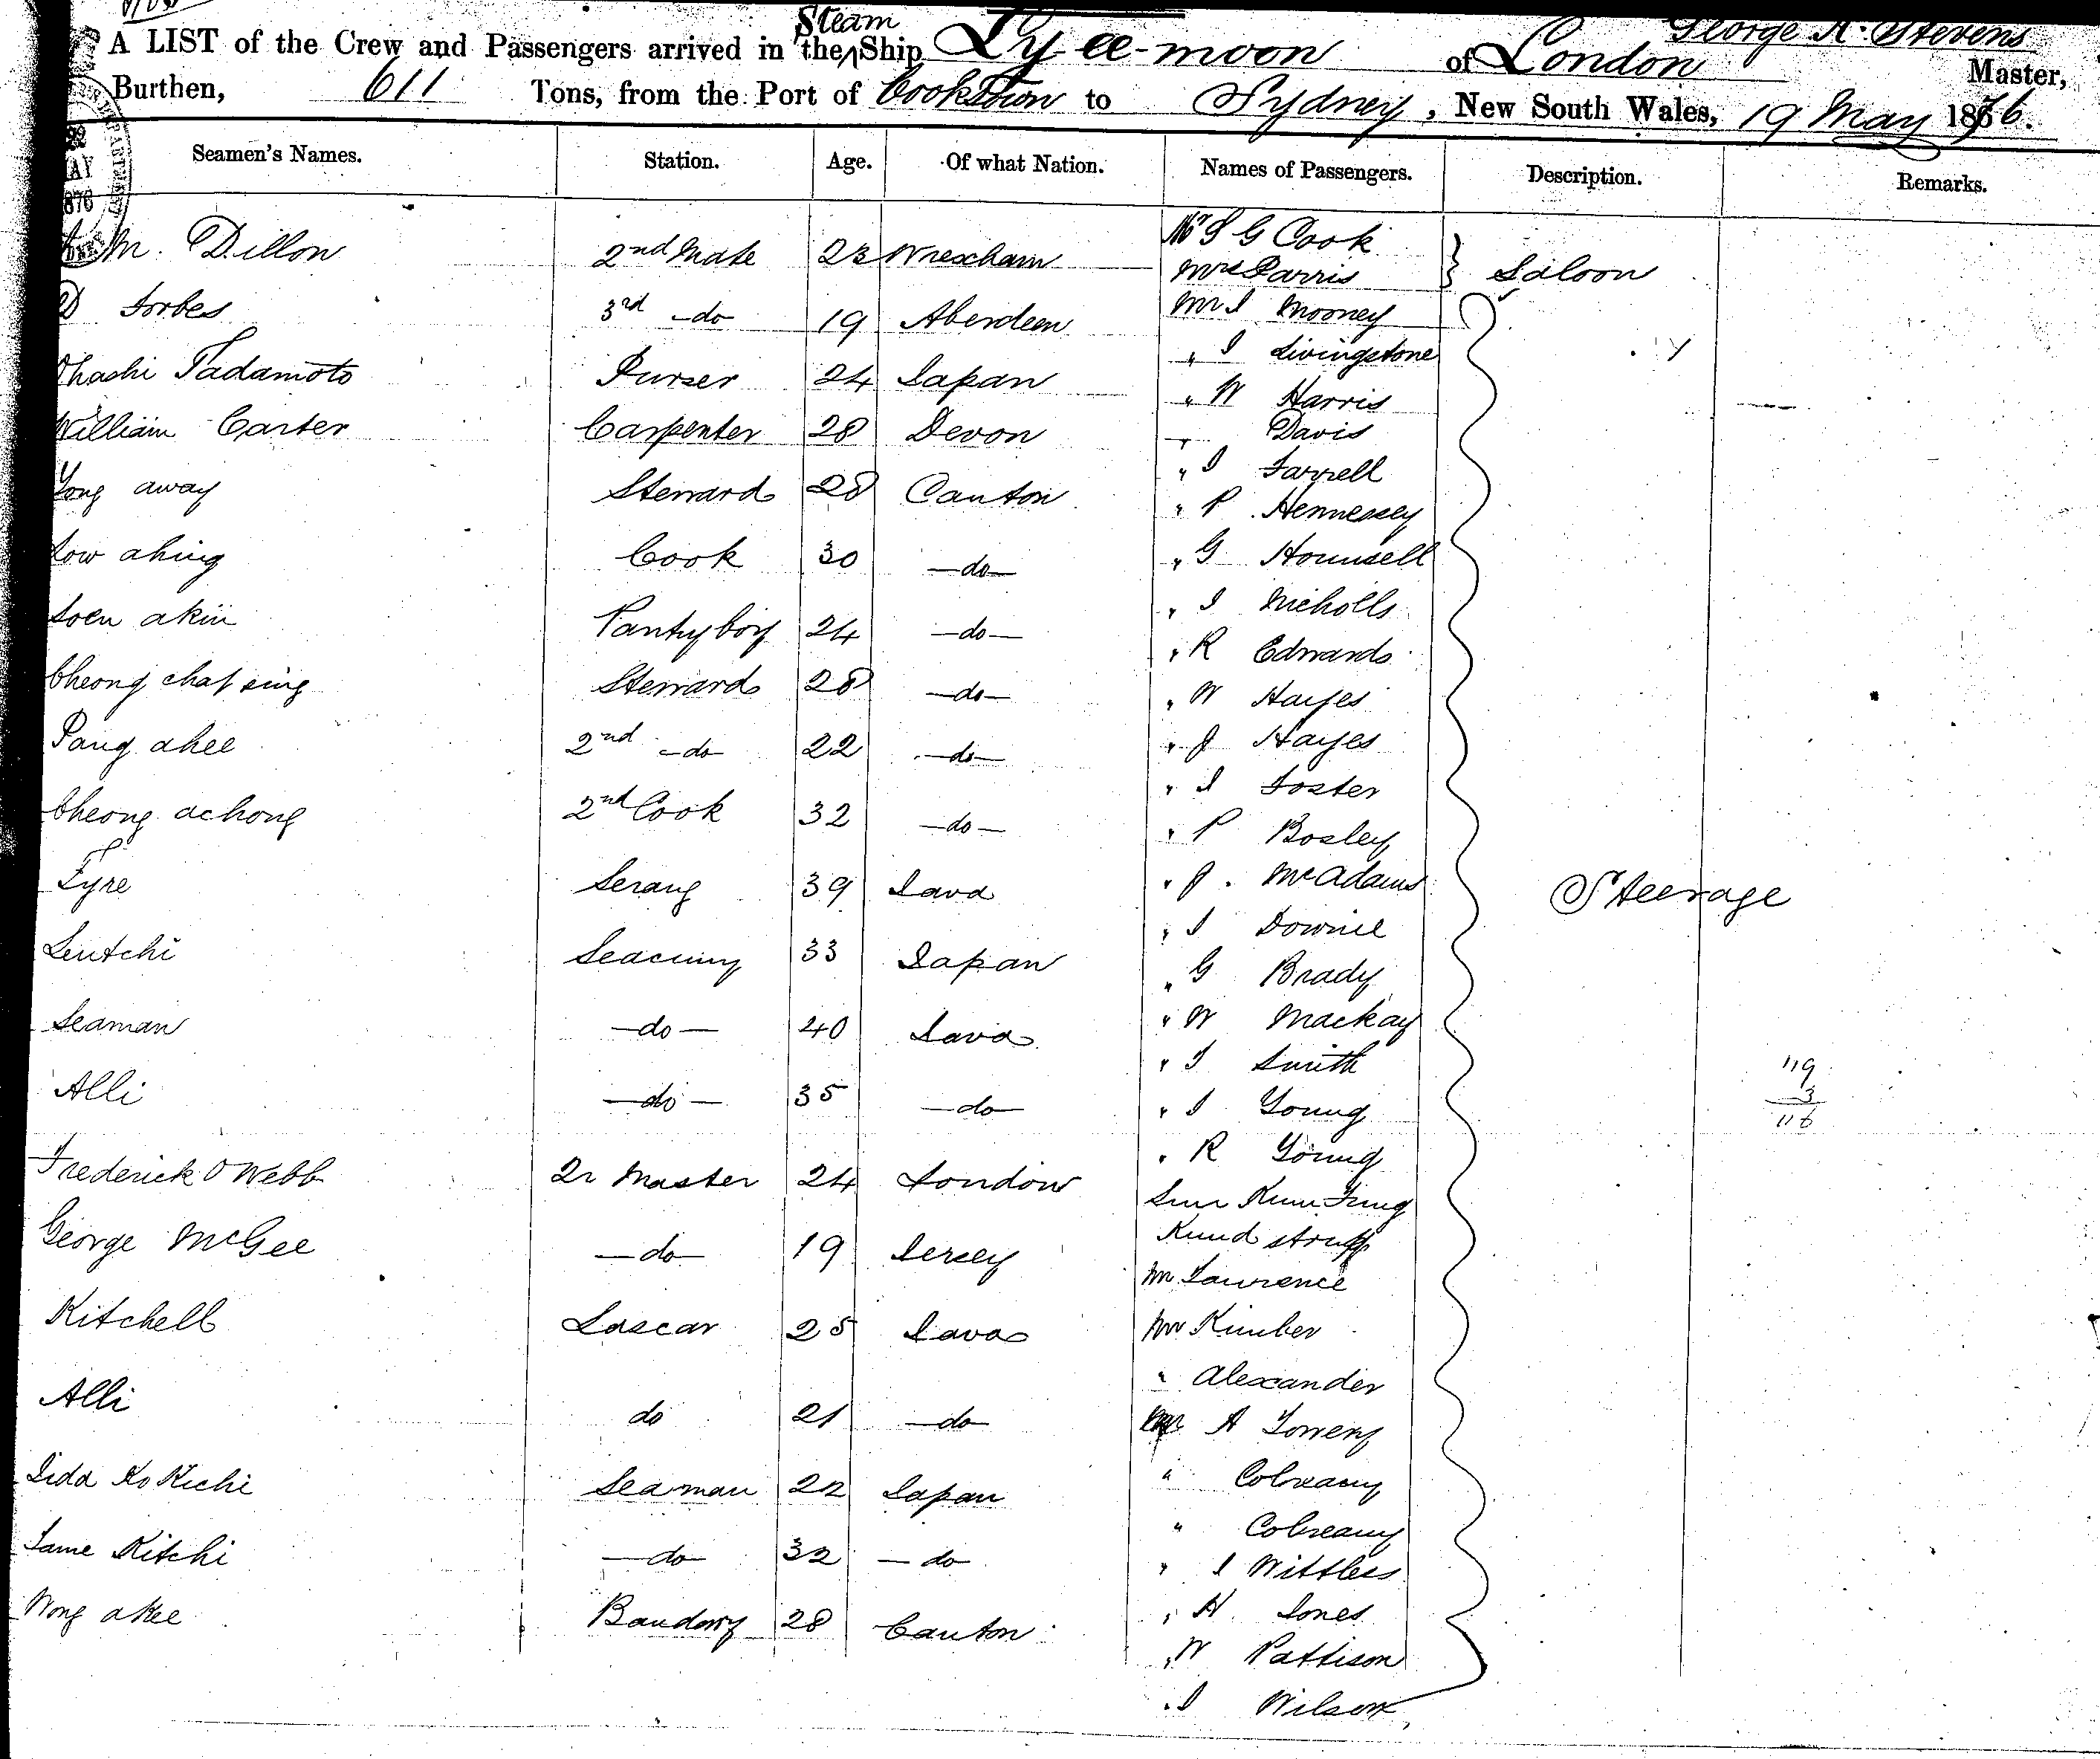 Steam
George A. Stevens
A LIST of the Crew and Passengers arrived in the Ship Ly-ee-moon of London Master,
Burthen, 611 Tons, from the Port of Cooktown to Sydney, New South Wales, 19 May 1876.
Seamen's Names. Station. Age. Of what Nation. Names of Passengers. Description. Remarks.
M. Dillon 2nd Mate 23 Wrexham
Forbes 3rd -do 19 Aberdeen
Ohashi Tadamoto Purser 24 Japan
William Carter Carpenter 28 Devon
Yong away Steward 28 Canton
Low ahing Cook 30 -do-
akin Pantryboy 24 -do-
Cheong chat sing Steward 28 -do-
Pang ahee 2nd -do 22 -do-
Cheong achong 2nd Cook 32 -do-
Serang 39 Java
Seutchi Seacunny 33 Japan
Seaman -do- 40 Java
Alli -do- 35 -do-
Frederick O Webb Qr Master 24 London
George McGee -do- 19 Jersey
Kitchell Lascar 25 Java
Alli do 21 -do-
Iida Ko Kichi Seaman 22 Japan
Same Kitchi -do- 32 -do
Wong akee 28 Canton
Mr S G Cook
Mrs Parris
} Saloon
Mr J Mooney
" J Livingstone
" W Harris
" Davis
" J Farrell
" P Hennessey
" G Hounsell
" J Nicholls
" R Edwards
" W Hayes
" J Hayes
" J Foster
" P Bosley
" J. McAdams
" J Downie
" G Brady
" W Mackay
" J Smith
" J Young
" R Young
Sun Kum
Kund
Mr Lawrence
Mr Kimber
" Alexander
Mr A
"
"
" J Wittless
" H Jones
" W Pattison
" J Wilson
Steerage
119
3
116